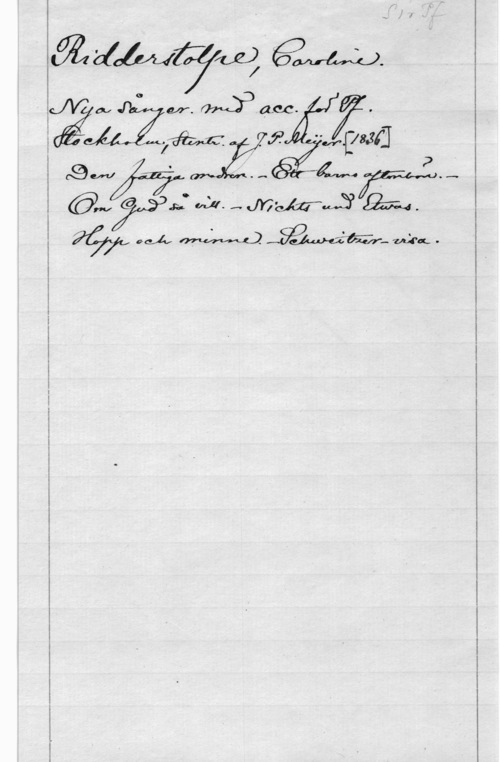 S 1 r Pf
Ridderstolpe, Caroline.
Nya sånger. med acc. för Pf.
Stockholm, Stentr. af J. P. Meyer. [1836]
Den fattiga modren. - Ett barns aftonbön. -
Om Gud så vill. - Nichts und Etwas.
Hopp och minne. - Schweitzer-visa.